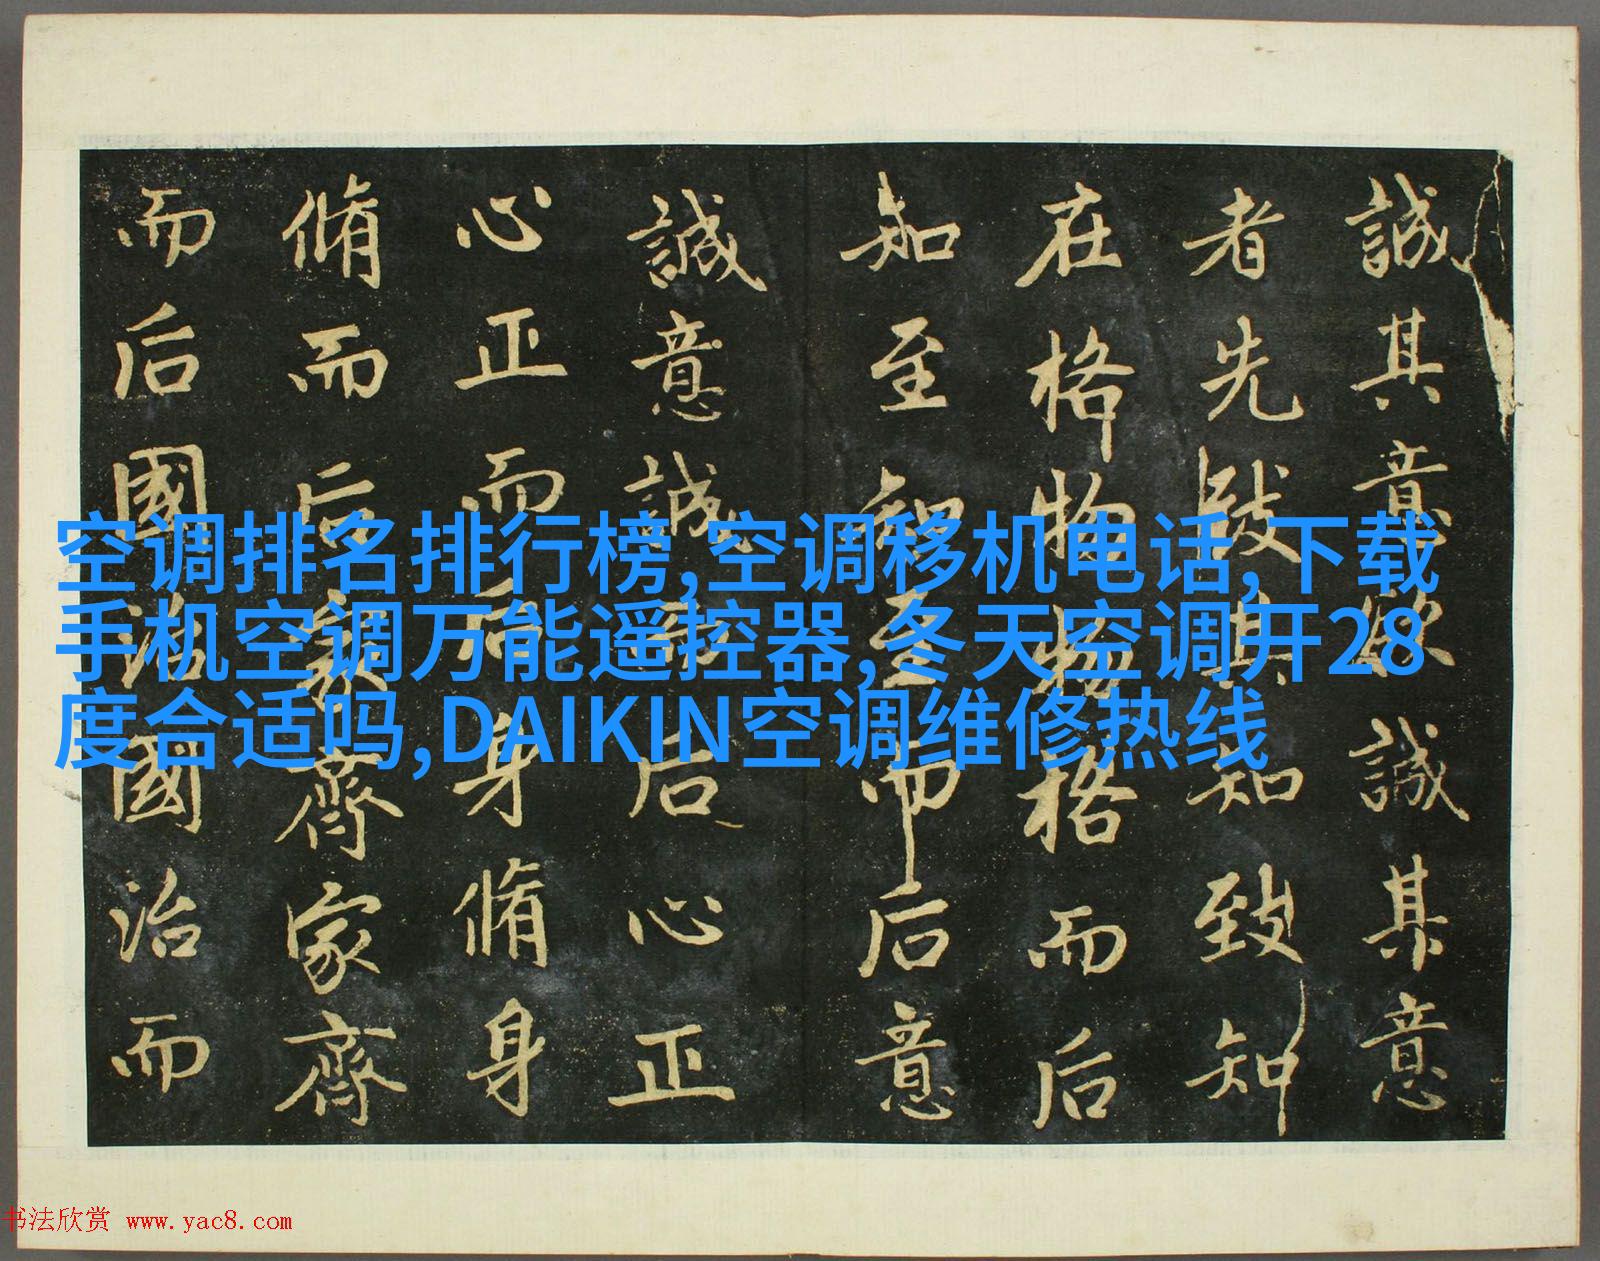 誠其意欲誠其意
者先致其知致知
在格物物格而后
知至知至而后意
誠意誠而后心正
心正而后身脩身
脩而后家齊家齊
而后國治國治而
空调排名排行榜,空调移机电话,下载
手机空调万能遥控器,冬天空调开28
度合适吗,DAIKIN空调维修热线
书法欣赏 www.yac8.com